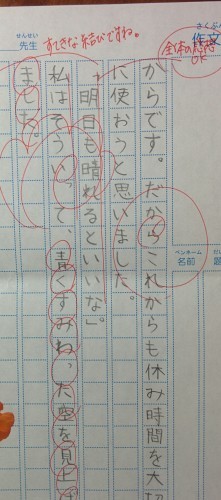 さくぶん
作文
OK
ペンネーム
名前
題
からです。だからこれからも休み時間を大
に使おうと思いました。
「明日も晴れるといいな」。
私はそういって、青くすみわった空を見上げ
ました。
すてきな結びですね。
せんせい
先生